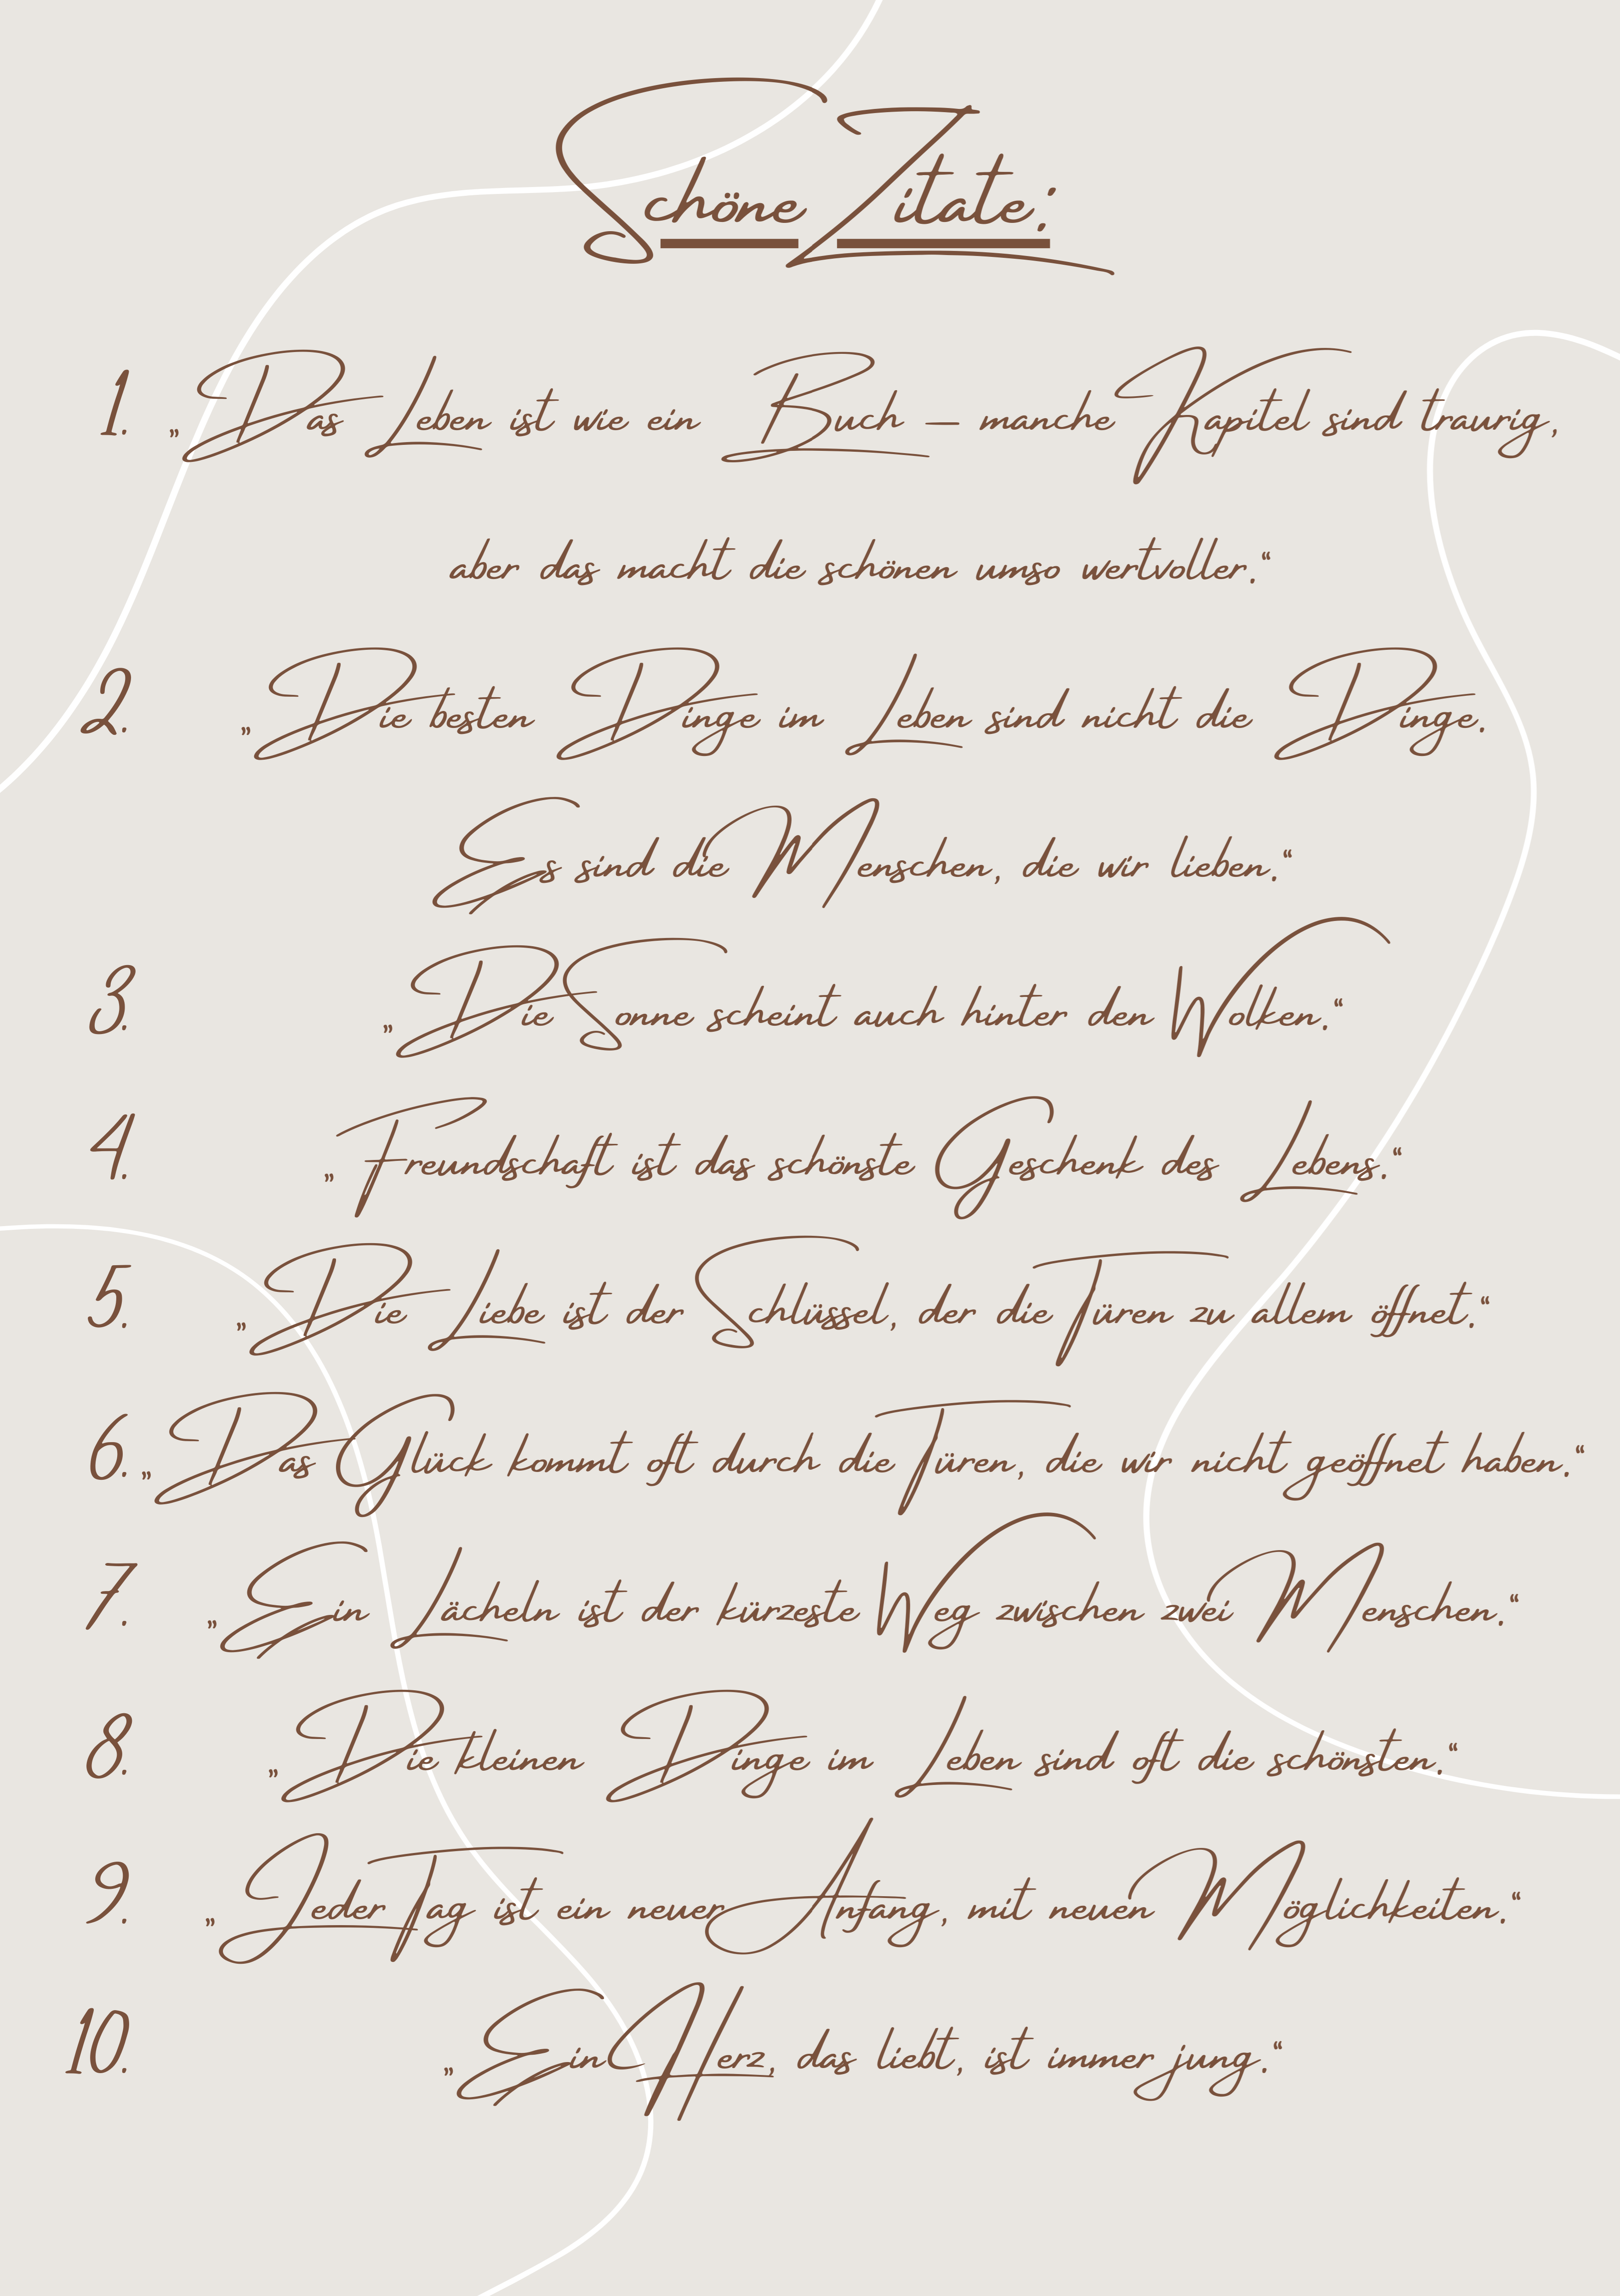 Schöne Zitate:
1. „Das Leben ist wie ein Buch – manche Kapitel sind traurig,
aber das macht die schönen umso wertvoller.“
2. „Die besten Dinge im Leben sind nicht die Dinge.
Es sind die Menschen, die wir lieben.“
3. „Die Sonne scheint auch hinter den Wolken.“
4. „Freundschaft ist das schönste Geschenk des Lebens.“
5. „Die Liebe ist der Schlüssel, der die Türen zu allem öffnet.“
6. „Das Glück kommt oft durch die Türen, die wir nicht geöffnet haben.“
7. „Ein Lächeln ist der kürzeste Weg zwischen zwei Menschen.“
8. „Die kleinen Dinge im Leben sind oft die schönsten.“
9. „Jeder Tag ist ein neuer Anfang, mit neuen Möglichkeiten.“
10. „Ein Herz, das liebt, ist immer jung.“